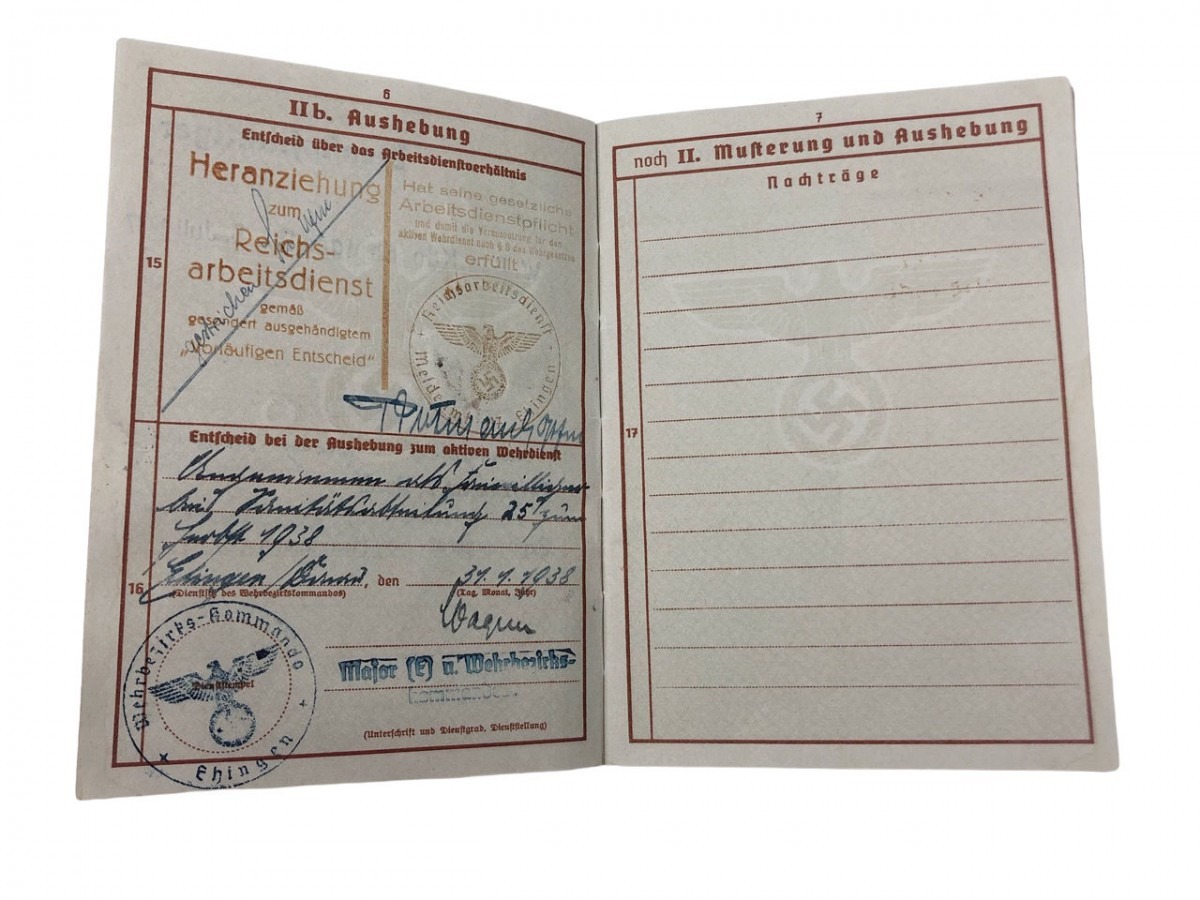 6
II b. Aushebung
Entscheid über das Arbeitsdienstverhältnis
15
Heranziehung
zum
Reichs-
arbeitsdienst
gemäß
gesondert ausgehändigtem
„Vorläufigen Entscheid“
gestrichen
Hat seine gesetzliche
Arbeitsdienstpflicht
und damit die Voraussetzung für den
aktiven Wehrdienst nach § 8 des Wehrgesetzes
erfüllt
Reichsarbeitsdienst
Ehingen
Entscheid bei der Aushebung zum aktiven Wehrdienst
16
Angenommen als Freiwilliger
bei Sanitätsabteilung 25 zum
Herbst 1938
Ehingen/Donau, den 31.1.1938
(Dienstsitz des Wehrbezirkskommandos) (Tag, Monat, Jahr)
Wagner
Major (E) u. Wehrbezirks-
kommandeur
(Unterschrift und Dienstgrad, Dienststellung)
Dienststempel
Wehrbezirks-Kommando
Ehingen
7
noch II. Musterung und Aushebung
Nachträge
17